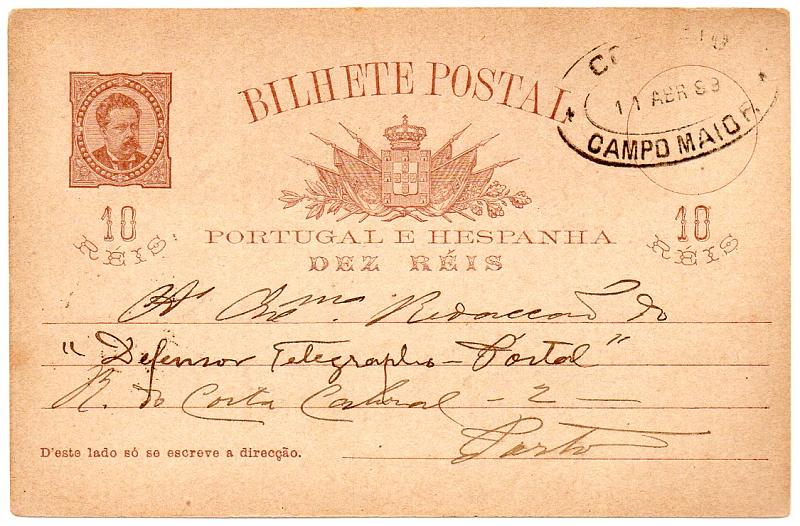 BILHETE POSTAL
CAMPO MAIOR
11 ABR 89
10 RÉIS
10 RÉIS
PORTUGAL E HESPANHA
DEZ RÉIS
Á Exmª. Redaccão do
"Defensor Telegrapho-Postal"
R. do Costa Cabral - 2 -
Porto
D'este lado só se escreve a direcção.